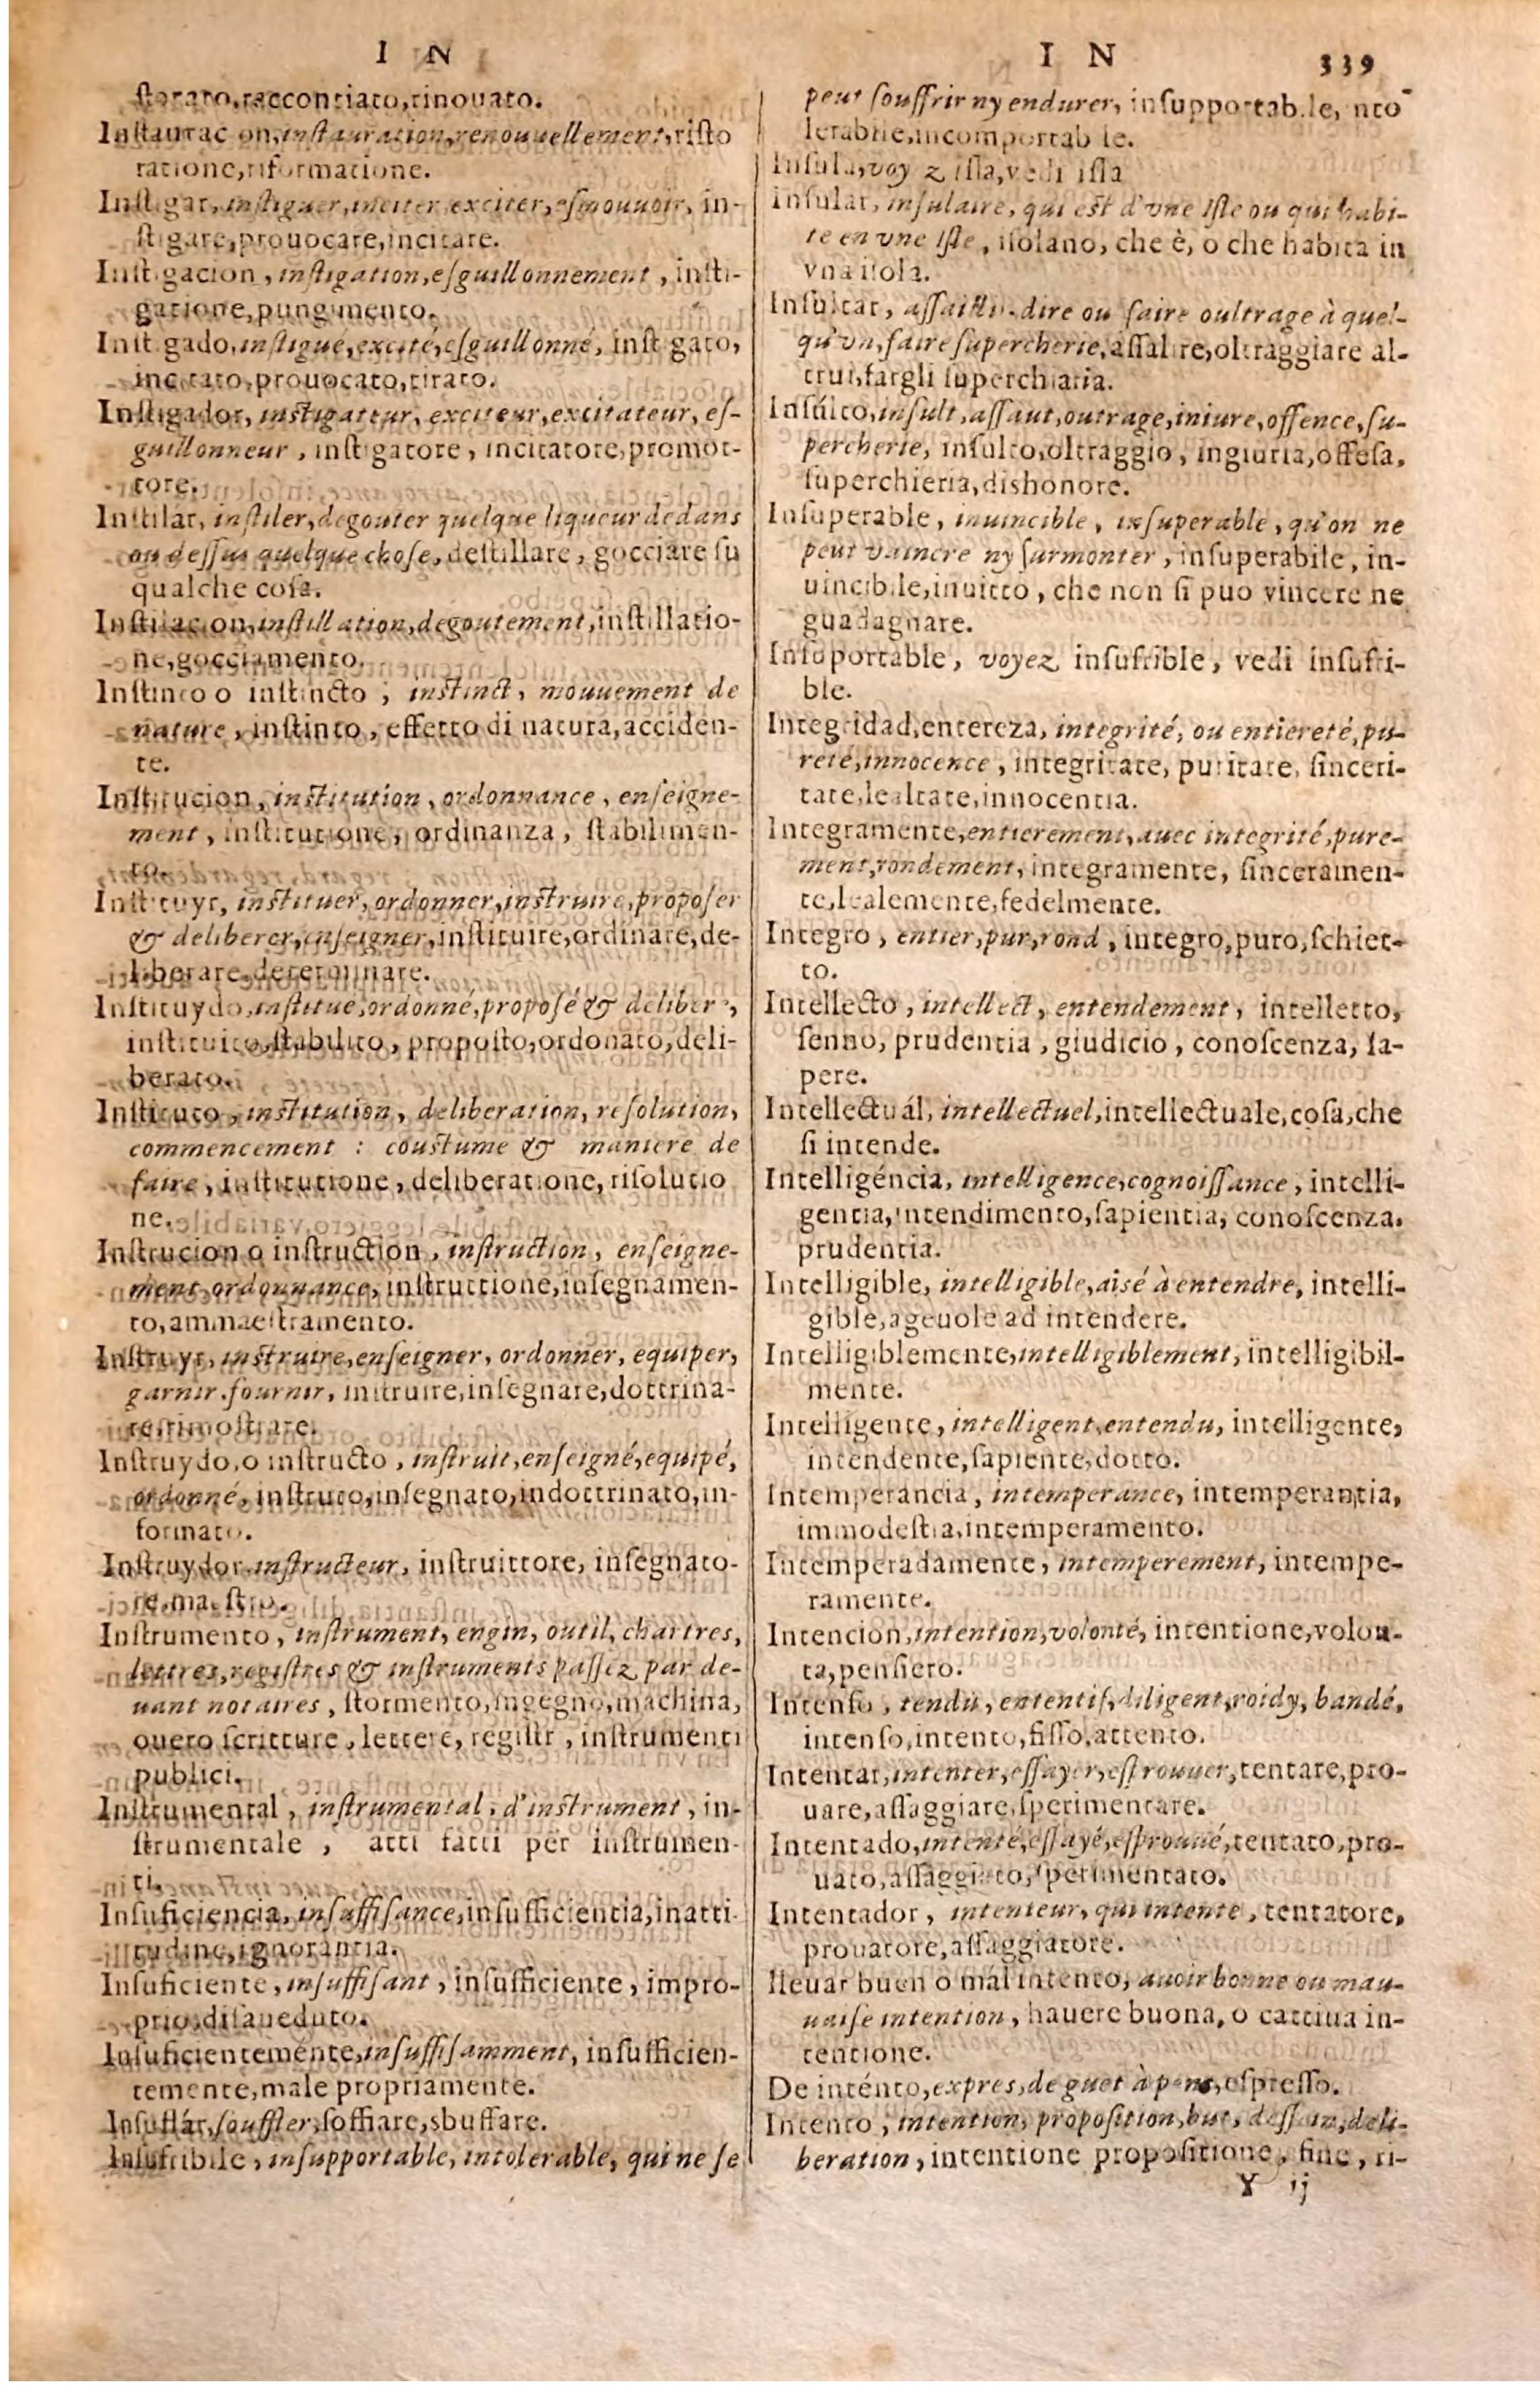 I N
ſtorato,raccontiato,rinouato.
Inſtaurac on,inſtauration,renouuellement,riſto
ratione,riformatione.
Inſtigar,inſtiguer,inciter,exciter,eſmouuoir, in-
ſtigare,prouocare,incitare.
Inſtigacion, inſtigation,eſguillonnement, inſti-
gatione,pungimento.
Inſtigado,inſtigué,excité,eſguillonné, inſtigato,
incitato,prouocato,tirato.
Inſtigador, inſtigateur, exciteur,excitateur, eſ-
guillonneur, inſtigatore, incitatore,promot-
tore.
Inſtilar, inſtiler,degouter quelque liqueur dedans
ou deſſus quelque choſe,deſtillare, gocciare ſu
qualche coſa.
Inſtilacion,inſtillation,degoutement,inſtillatio-
ne,gocciamento.
Inſtinto o inſtincto, inſtinct, mouuement de
nature, inſtinto, effetto di natura,acciden-
te.
Inſtitucion, inſtitution, ordonnance, enſeigne-
ment, inſtitutione, ordinanza, ſtabilimen-
to.
Inſtituyr, inſtituer,ordonner,inſtruire,propoſer
& deliberer,enſeigner,inſtituire,ordinare,de-
liberare,determinare.
Inſtituydo,inſtitue,ordonné,propoſé & deliberé,
inſtituito,ſtabilito, propoſto,ordonato,deli-
berato.
Inſtituto, inſtitution, deliberation, reſolution,
commencement : couſtume & maniere de
faire, inſtitutione, deliberatione,riſolutio
ne.
Inſtrucion o inſtruction, inſtruction, enſeigne-
ment,ordonnance,inſtruttione,inſegnamen-
to,ammaeſtramento.
Inſtruyr, inſtruire,enſeigner, ordonner, equiper,
garnir.fournir, inſtruire,inſegnare,dottrina-
re,rimoſtrare.
Inſtruydo,o inſtructo, inſtruit,enſeigné,equipé,
ordonné,inſtruto,inſegnato,indottrinato,in-
formato.
Inſtruydor,inſtructeur, inſtruittore, inſegnato-
re,maeſtro.
Inſtrumento, inſtrument, engin, outil, chartres,
lettres,regiſtres & inſtruments paſſez par de-
uant notaires, ſtormento,ingegno,machina,
ouero ſcritture, lettere, regiſtr, inſtrumenti
publici.
Inſtrumental, inſtrumental, d'inſtrument, in-
ſtrumentale, atti fatti per inſtrumen-
ti.
Inſuficiencia,inſuffiſance,inſufficientia,inatti
tudine,ignorantia.
Inſuficiente,inſuffiſant, inſufficiente, impro-
prio,diſaueduto.
Inſuficienteménte,inſuffiſamment, inſufficien-
temente,male propriamente.
Inſuflár,ſouffler,ſoffiare,sbuffare.
Inſufribile, inſupportable, intolerable, qui ne ſe
I N 339
peut ſouffrir ny endurer, inſupportab.le, nto
lerabile,incomportab le.
Inſula,voy z iſla,vedi iſla
Inſular, inſulaire, qui eſt d'vne Iſle ou qui habi-
te en vne Iſle, iſolano, che è, o che habita in
vna iſola.
Inſultar, aſſaillir.dire ou faire oultrage à quel-
qu'vn,faire ſupercherie,aſſalire,oltraggiare al-
trui,fargli ſuperchiaria.
Inſúlto,inſult,aſſaut,outrage,iniure,offence,ſu-
percherie, inſulto,oltraggio, ingiuria,offeſa,
ſuperchieria,dishonore.
Inſuperable, inuincible, inſuperable, qu'on ne
peut vaincre ny ſurmonter, inſuperabile, in-
uincibile,inuitto, che non ſi puo vincere ne
guadagnare.
Inſuportable, voyez inſufrible, vedi inſufri-
ble.
Integridad,entereza, integrité, ou entiereté,pu-
reté,innocence, integritate, puritate, ſinceri-
tate,lealtate,innocentia.
Integramente,entierement,auec integrité,pure-
ment,rondement, integramente, ſinceramen-
te,lealemente,fedelmente.
Integro, entier,pur,rond, integro,puro,ſchiet-
to.
Intellecto, intellect, entendement, intelletto,
ſenno, prudentia, giudicio, conoſcenza, ſa-
pere.
Intellectuál, intellectuel,intellectuale,coſa,che
ſi intende.
Intelligéncia, intelligence,cognoiſſance, intelli-
gentia,intendimento,ſapientia, conoſcenza,
prudentia.
Intelligible, intelligible,aisé à entendre, intelli-
gible,ageuole ad intendere.
Intelligiblemente,intelligiblement, intelligibil-
mente.
Intelligente, intelligent,entendu, intelligente,
intendente,ſapiente,dotto.
Intemperáncia, intemperance, intemperantia,
immodeſtia,intemperamento.
Intemperadamente, intemperement, intempe-
ramente.
Intencion,intention,volonté, intentione,volon-
ta,penſiero.
Intenſo, tendu, ententif,diligent,roidy, bandé,
intenſo,intento,fiſſo,attento.
Intentar,intenter,eſſayer,eſprouuer,tentare,pro-
uare,aſſaggiare,ſperimentare.
Intentado,intenté,eſſayé,eſprouué,tentato,pro-
uato,aſſaggiato,ſperimentato.
Intentador, intenteur, qui intente, tentatore,
prouatore,aſſaggiatore.
lleuar buen o mál intento, auoir bonne ou mau-
uaiſe intention, hauere buona, o cattiua in-
tentione.
De inténto,expres,de guet à pens,eſpreſſo.
Intento, intention, propoſition,but, deſſain,deli-
beration, intentione propoſitione, fine, ri-
Y ij